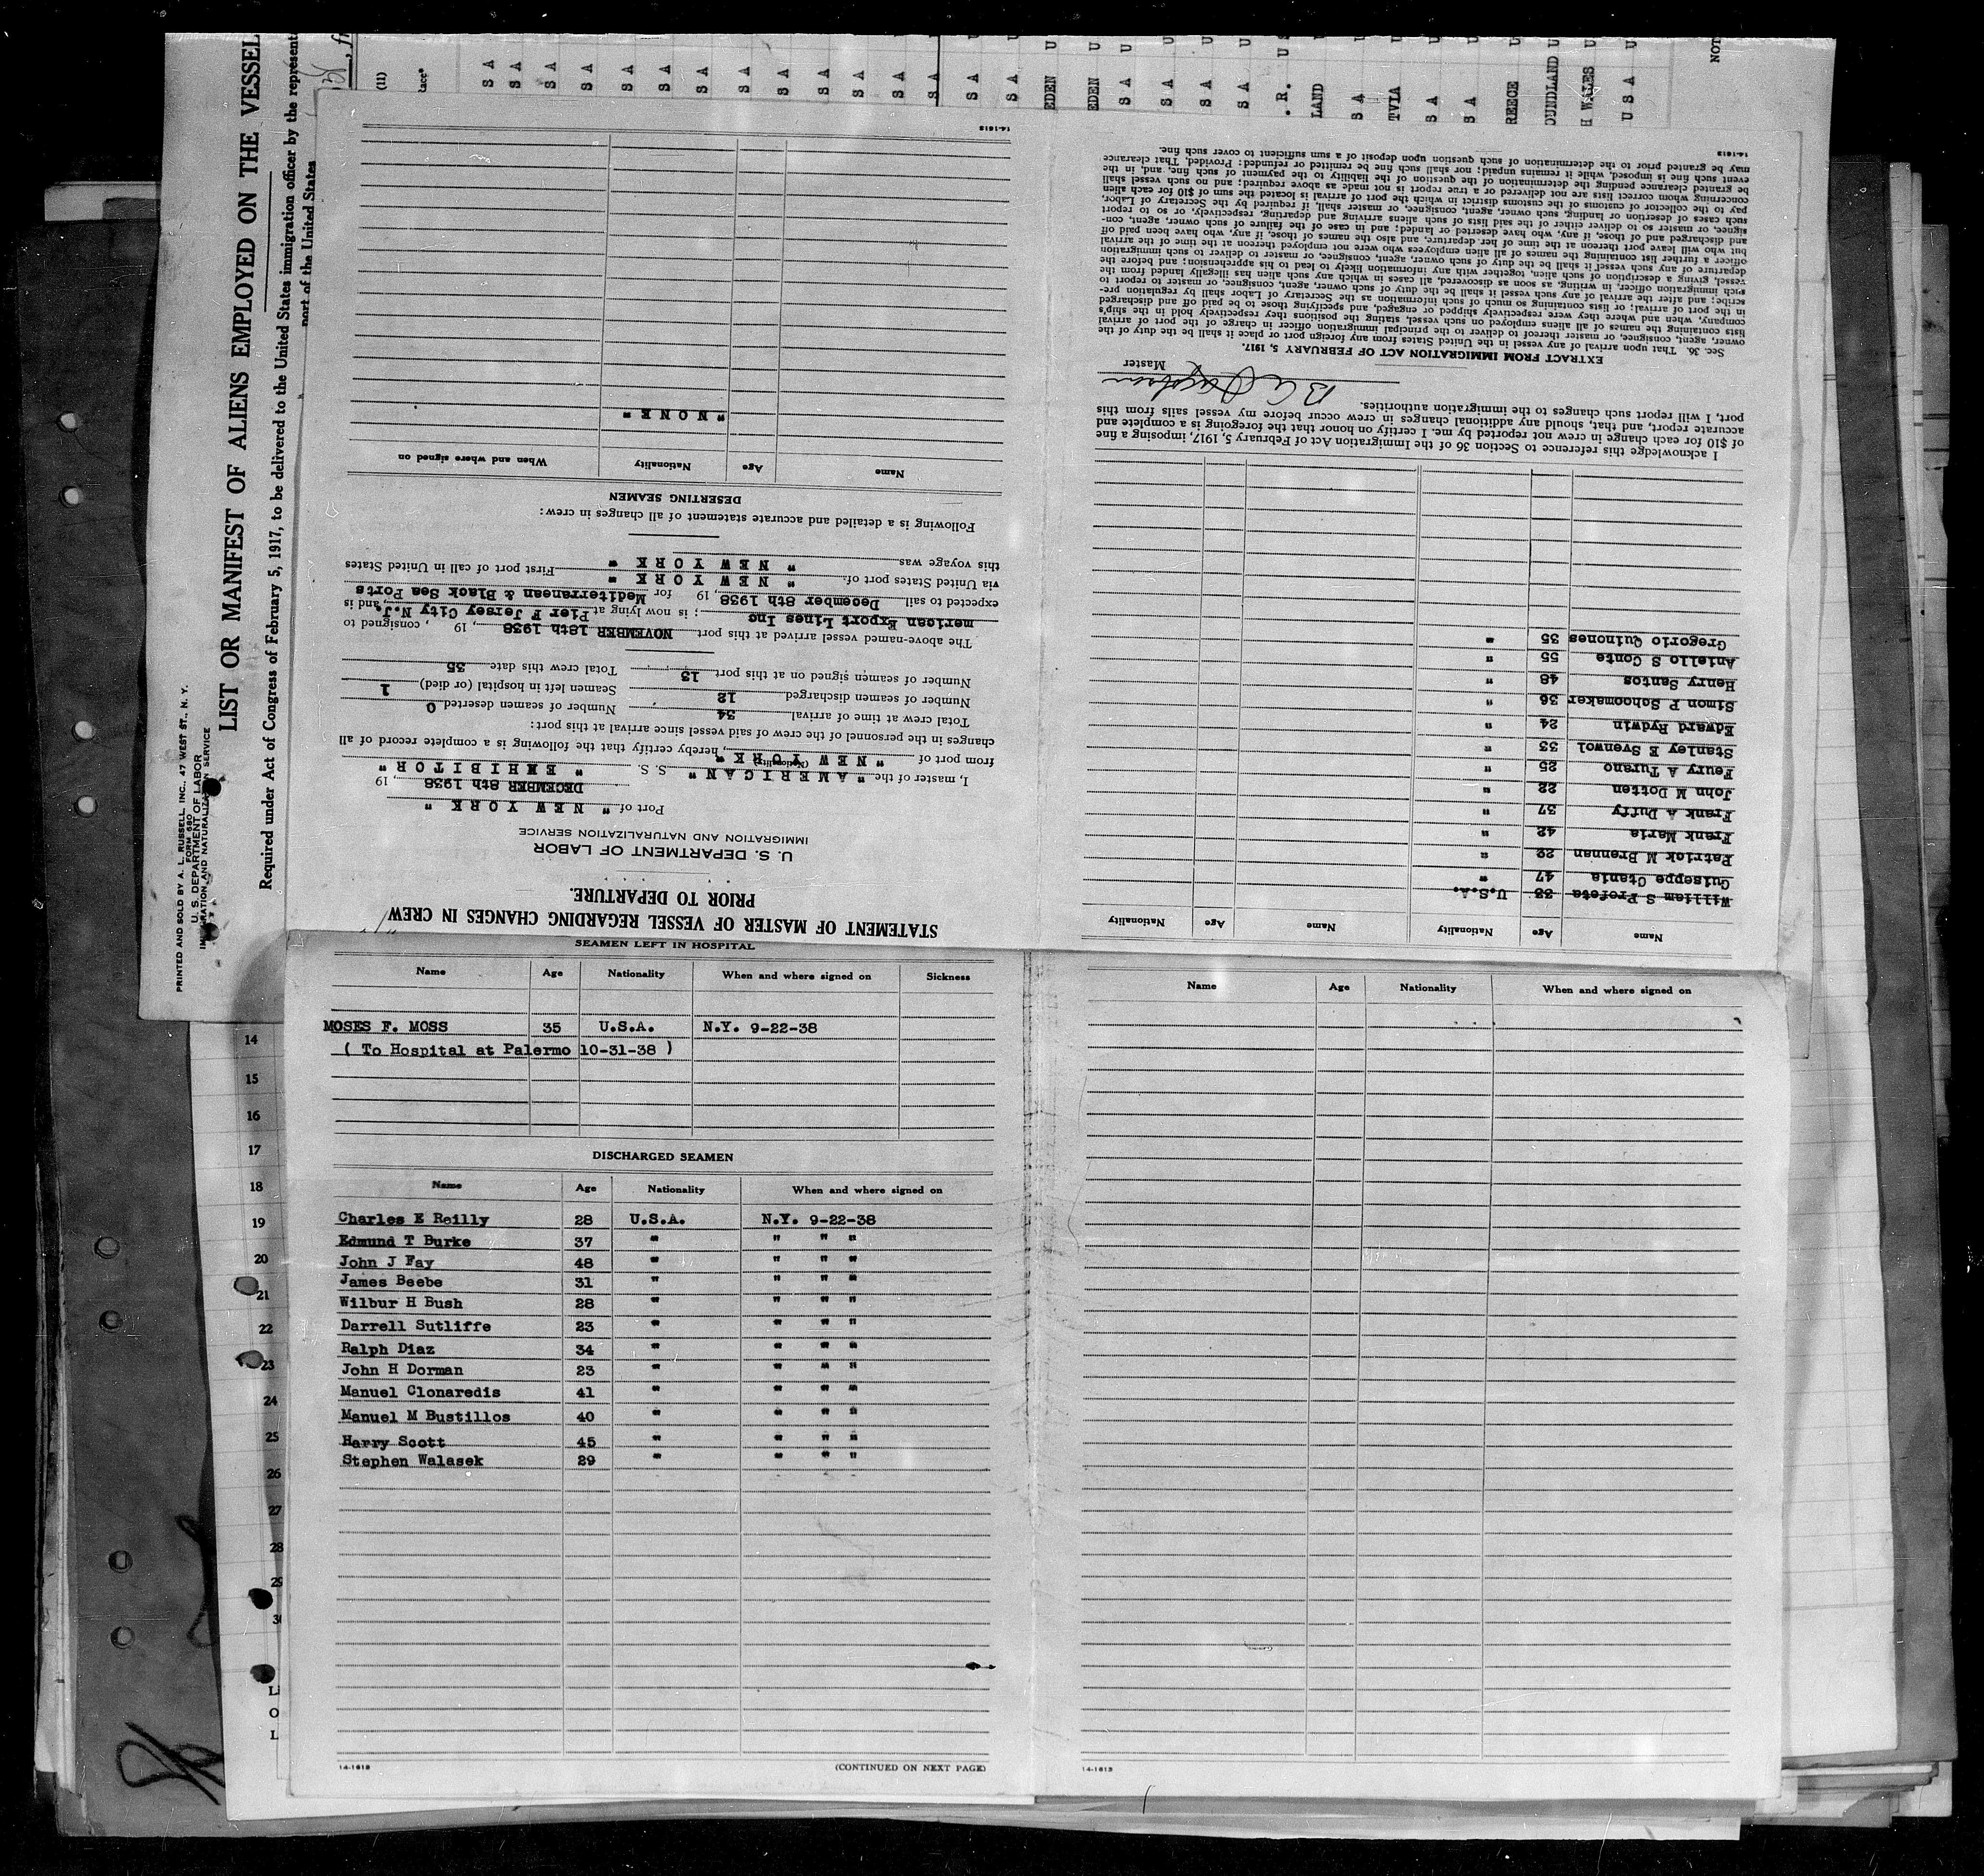 PRINTED AND SOLD BY A. L. RUSSELL, INC., 47 WEST ST., N. Y.
FORM 680
U. S. DEPARTMENT OF LABOR
IMMIGRATION AND NATURALIZATION SERVICE
LIST OR MANIFEST OF ALIENS EMPLOYED ON THE VESSEL
Required under Act of Congress of February 5, 1917, to be delivered to the United States immigration officer by the represent
port of the United States
(11)
S A
S A
S A
S A
S A
S A
S A
S A
S A
S A
S A
S A
S A
S A
EDEN U
EDEN U
S A U
S A U
S A U
S A U
. R. U S
LAND U
S A U
TVIA U
S A U
S A U
REECE U
OUNDLAND U
H WALES U
U S A U
STATEMENT OF MASTER OF VESSEL REGARDING CHANGES IN CREW
PRIOR TO DEPARTURE.
U. S. DEPARTMENT OF LABOR
IMMIGRATION AND NATURALIZATION SERVICE
Port of " NEW YORK "
DECEMBER 8th 1938, 19
I, master of the "AMERICAN" S. S. " EXHIBITOR "
(Nationality)
from port of " NEW YORK ", hereby certify that the following is a complete record of all
changes in the personnel of the crew of said vessel since arrival at this port:
Total crew at time of arrival 34 Number of seamen deserted 0
Number of seamen discharged 12 Seamen left in hospital (or died) 1
Number of seamen signed on at this port 13 Total crew this date 35
The above-named vessel arrived at this port NOVEMBER 18th 1938, 19 , consigned to
merican Export Lines Inc ; is now lying at Pier F Jersey City N.J., and is
expected to sail December 8th 1938, 19 for Mediterranean & Black Sea Ports
via United States port of " NEW YORK " First port of call in United States
this voyage was " NEW YORK "
Following is a detailed and accurate statement of all changes in crew:
DESERTING SEAMEN
Name Age Nationality When and where signed on
"NONE"
14-1613
Name Age Nationality Name Age Nationality
William S Profeta 33 U.S.A.
Guiseppe Ctania 47 "
Patrick M Brennan 29 "
Frank Maria 42 "
Frank A Duffy 37 "
John M Dotten 22 "
Feury A Turano 25 "
Stanley E Svenwol 33 "
Edward Rydwin 24 "
Simon P Schoomaker 36 "
Henry Santos 48 "
Aniello S Conte 55 "
Gregorio Quinones 35 "
I acknowledge this reference to Section 36 of the Immigration Act of February 5, 1917, imposing a fine
of $10 for each change in crew not reported by me. I certify on honor that the foregoing is a complete and
accurate report, and that, should any additional changes in crew occur before my vessel sails from this
port, I will report such changes to the immigration authorities.
Master
EXTRACT FROM IMMIGRATION ACT OF FEBRUARY 5, 1917.
Sec. 36. That upon arrival of any vessel in the United States from any foreign port or place it shall be the duty of the
owner, agent, consignee, or master thereof to deliver to the principal immigration officer in charge of the port of arrival
lists containing the names of all aliens employed on such vessel, stating the positions they respectively hold in the ship's
company, when and where they were respectively shipped or engaged, and specifying those to be paid off and discharged
in the port of arrival; or lists containing so much of such information as the Secretary of Labor shall by regulation pre-
scribe; and after the arrival of any such vessel it shall be the duty of such owner, agent, consignee, or master to report to
such immigration officer, in writing, as soon as discovered, all cases in which any such alien has illegally landed from the
vessel, giving a description of such alien, together with any information likely to lead to his apprehension; and before the
departure of any such vessel it shall be the duty of such owner, agent, consignee, or master to deliver to such immigration
officer a further list containing the names of all alien employees who were not employed thereon at the time of the arrival
but who will leave port thereon at the time of her departure, and also the names of those, if any, who have been paid off
and discharged and of those, if any, who have deserted or landed; and in case of the failure of such owner, agent, con-
signee, or master so to deliver either of the said lists of such aliens arriving and departing, respectively, or so to report
such cases of desertion or landing, such owner, agent, consignee, or master, shall, if required by the Secretary of Labor,
pay to the collector of customs of the customs district in which the port of arrival is located the sum of $10 for each alien
concerning whom correct lists are not delivered or a true report is not made as above required; and no such vessel shall
be granted clearance pending the determination of the question of the liability to the payment of such fine, and, in the
event such fine is imposed, while it remains unpaid; nor shall such fine be remitted or refunded: Provided, That clearance
may be granted prior to the determination of such question upon deposit of a sum sufficient to cover such fine.
14-1613
SEAMEN LEFT IN HOSPITAL
Name Age Nationality When and where signed on Sickness
MOSES F. MOSS 35 U.S.A. N.Y. 9-22-38
( To Hospital at Palermo 10-31-38 )
DISCHARGED SEAMEN
Name Age Nationality When and where signed on
Charles E Reilly 28 U.S.A. N.Y. 9-22-38
Edmund T Burke 37 " " " "
John J Fay 48 " " " "
James Beebe 31 " " " "
Wilbur H Bush 28 " " " "
Darrell Sutliffe 23 " " " "
Ralph Diaz 34 " " " "
John H Dorman 23 " " " "
Manuel Clonaredis 41 " " " "
Manuel M Bustillos 40 " " " "
Harry Scott 45 " " " "
Stephen Walasek 29 " " " "
14-1613 (CONTINUED ON NEXT PAGE)
Name Age Nationality When and where signed on
14-1613
14
15
16
17
18
19
20
21
22
23
24
25
26
27
28
29